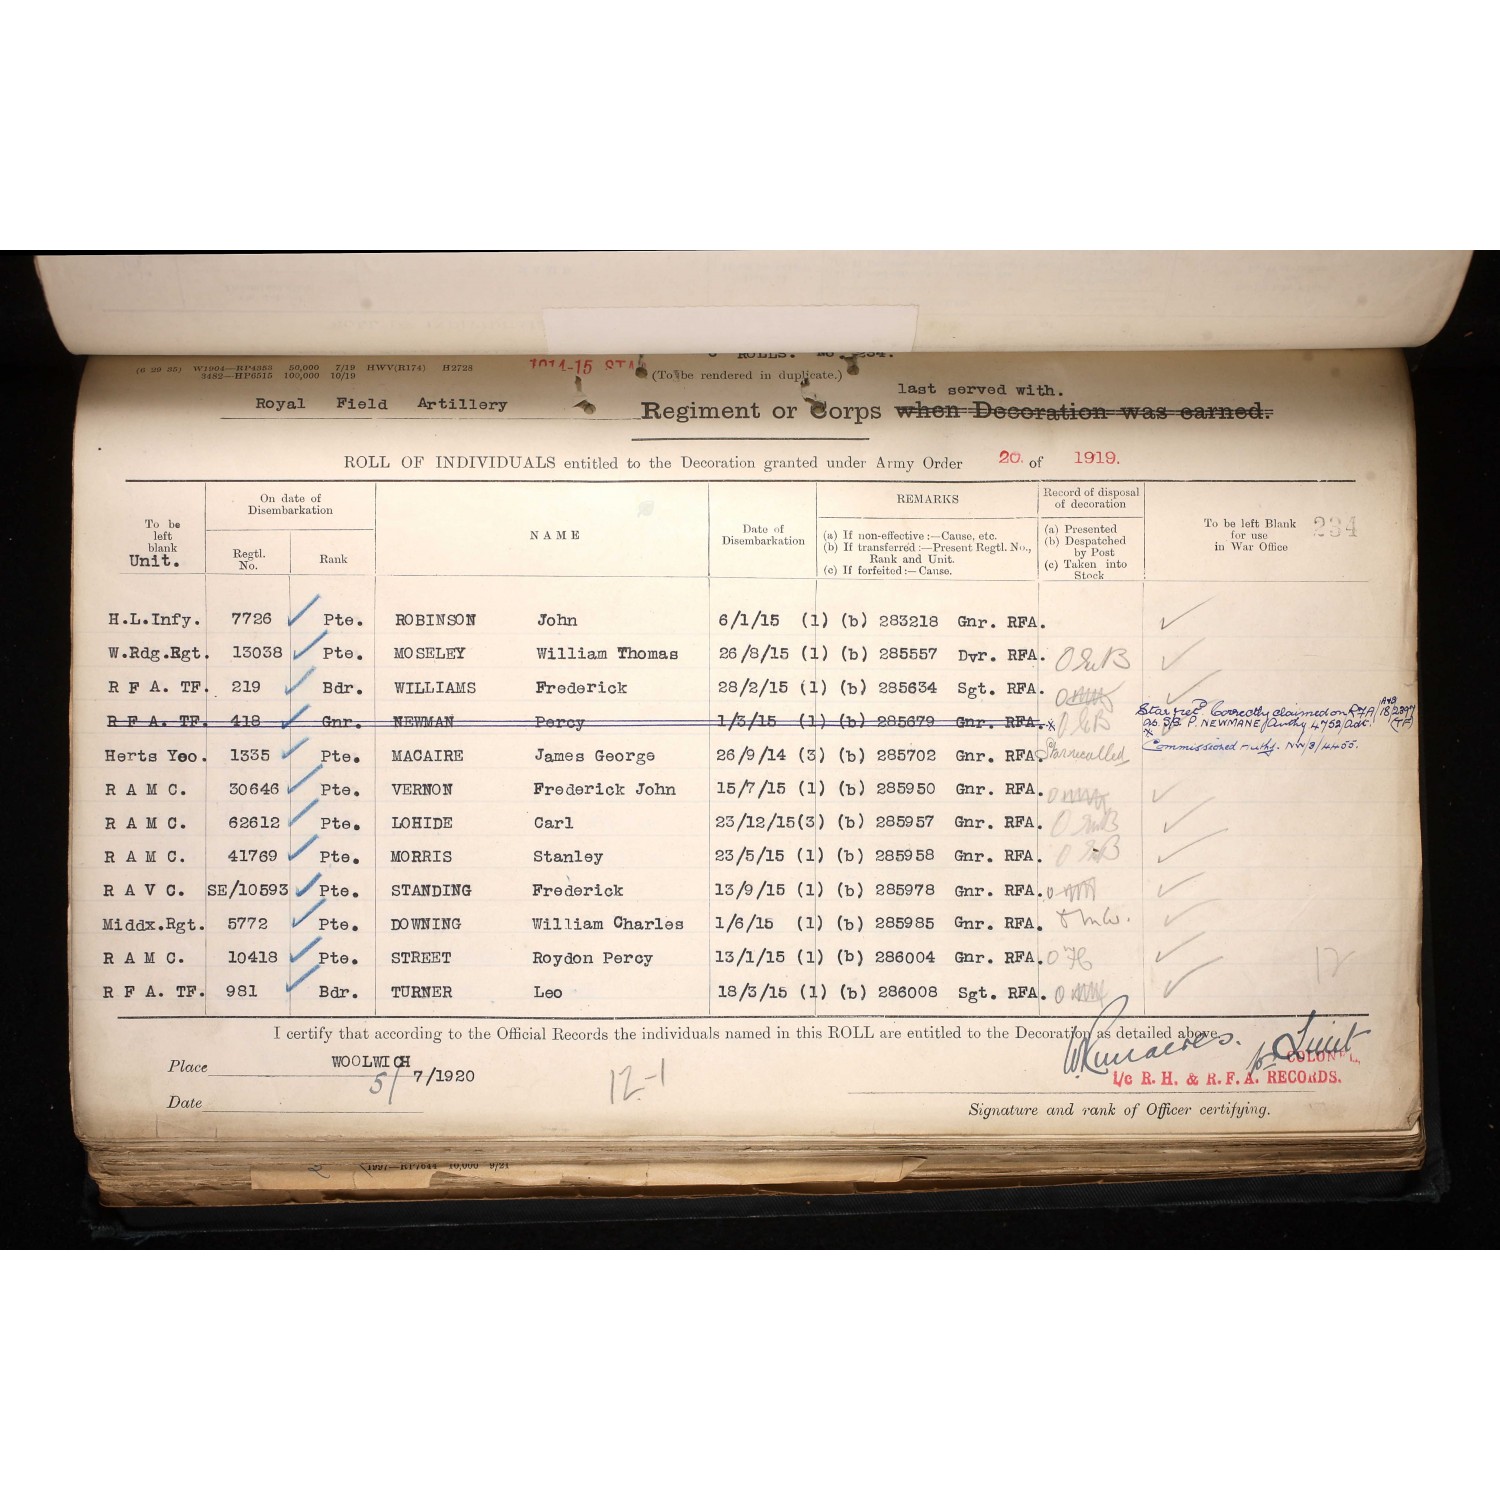 ROLLS. No. 234.
(6 29 35) W1904—RP4353 50,000 7/19 HWV(R174) H2728
3482—HP6515 100,000 10/19
1914-15 STA
(To be rendered in duplicate.)
last served with.
Royal Field Artillery Regiment or Corps when Decoration was earned.
ROLL OF INDIVIDUALS entitled to the Decoration granted under Army Order 20. of 1919.
To be left blank
Unit.
On date of Disembarkation
Regtl. No.
Rank
NAME
Date of Disembarkation
REMARKS
(a) If non-effective :—Cause, etc.
(b) If transferred :—Present Regtl. No., Rank and Unit.
(c) If forfeited :—Cause.
Record of disposal of decoration
(a) Presented
(b) Despatched by Post
(c) Taken into Stock
To be left Blank for use in War Office
234
H.L.Infy. 7726 Pte. ROBINSON John 6/1/15 (1) (b) 283218 Gnr. RFA.
W.Rdg.Rgt. 13038 Pte. MOSELEY William Thomas 26/8/15 (1) (b) 285557 Dvr. RFA.
R F A. TF. 219 Bdr. WILLIAMS Frederick 28/2/15 (1) (b) 285634 Sgt. RFA.
R F A. TF. 418 Gnr. NEWMAN Percy 1/3/15 (1) (b) 285679 Gnr. RFA.
Star Correctly claimed on RFA/18/2397 (TF)
P. NEWMANE/Authy 4752/Adt.
Commissioned Authy. NW/8/4455.
Herts Yeo. 1335 Pte. MACAIRE James George 26/9/14 (3) (b) 285702 Gnr. RFA
R A M C. 30646 Pte. VERNON Frederick John 15/7/15 (1) (b) 285950 Gnr. RFA.
R A M C. 62612 Pte. LOHIDE Carl 23/12/15(3) (b) 285957 Gnr. RFA.
R A M C. 41769 Pte. MORRIS Stanley 23/5/15 (1) (b) 285958 Gnr. RFA.
R A V C. SE/10593 Pte. STANDING Frederick 13/9/15 (1) (b) 285978 Gnr. RFA.
Middx.Rgt. 5772 Pte. DOWNING William Charles 1/6/15 (1) (b) 285985 Gnr. RFA.
R A M C. 10418 Pte. STREET Roydon Percy 13/1/15 (1) (b) 286004 Gnr. RFA.
12
R F A. TF. 981 Bdr. TURNER Leo 18/3/15 (1) (b) 286008 Sgt. RFA.
I certify that according to the Official Records the individuals named in this ROLL are entitled to the Decoration as detailed above.
Place WOOLWICH
5/7/1920
12-1
for Lieut
COLONEL,
i/c R. H. & R. F. A. RECORDS.
Date
Signature and rank of Officer certifying.
10,000 9/21